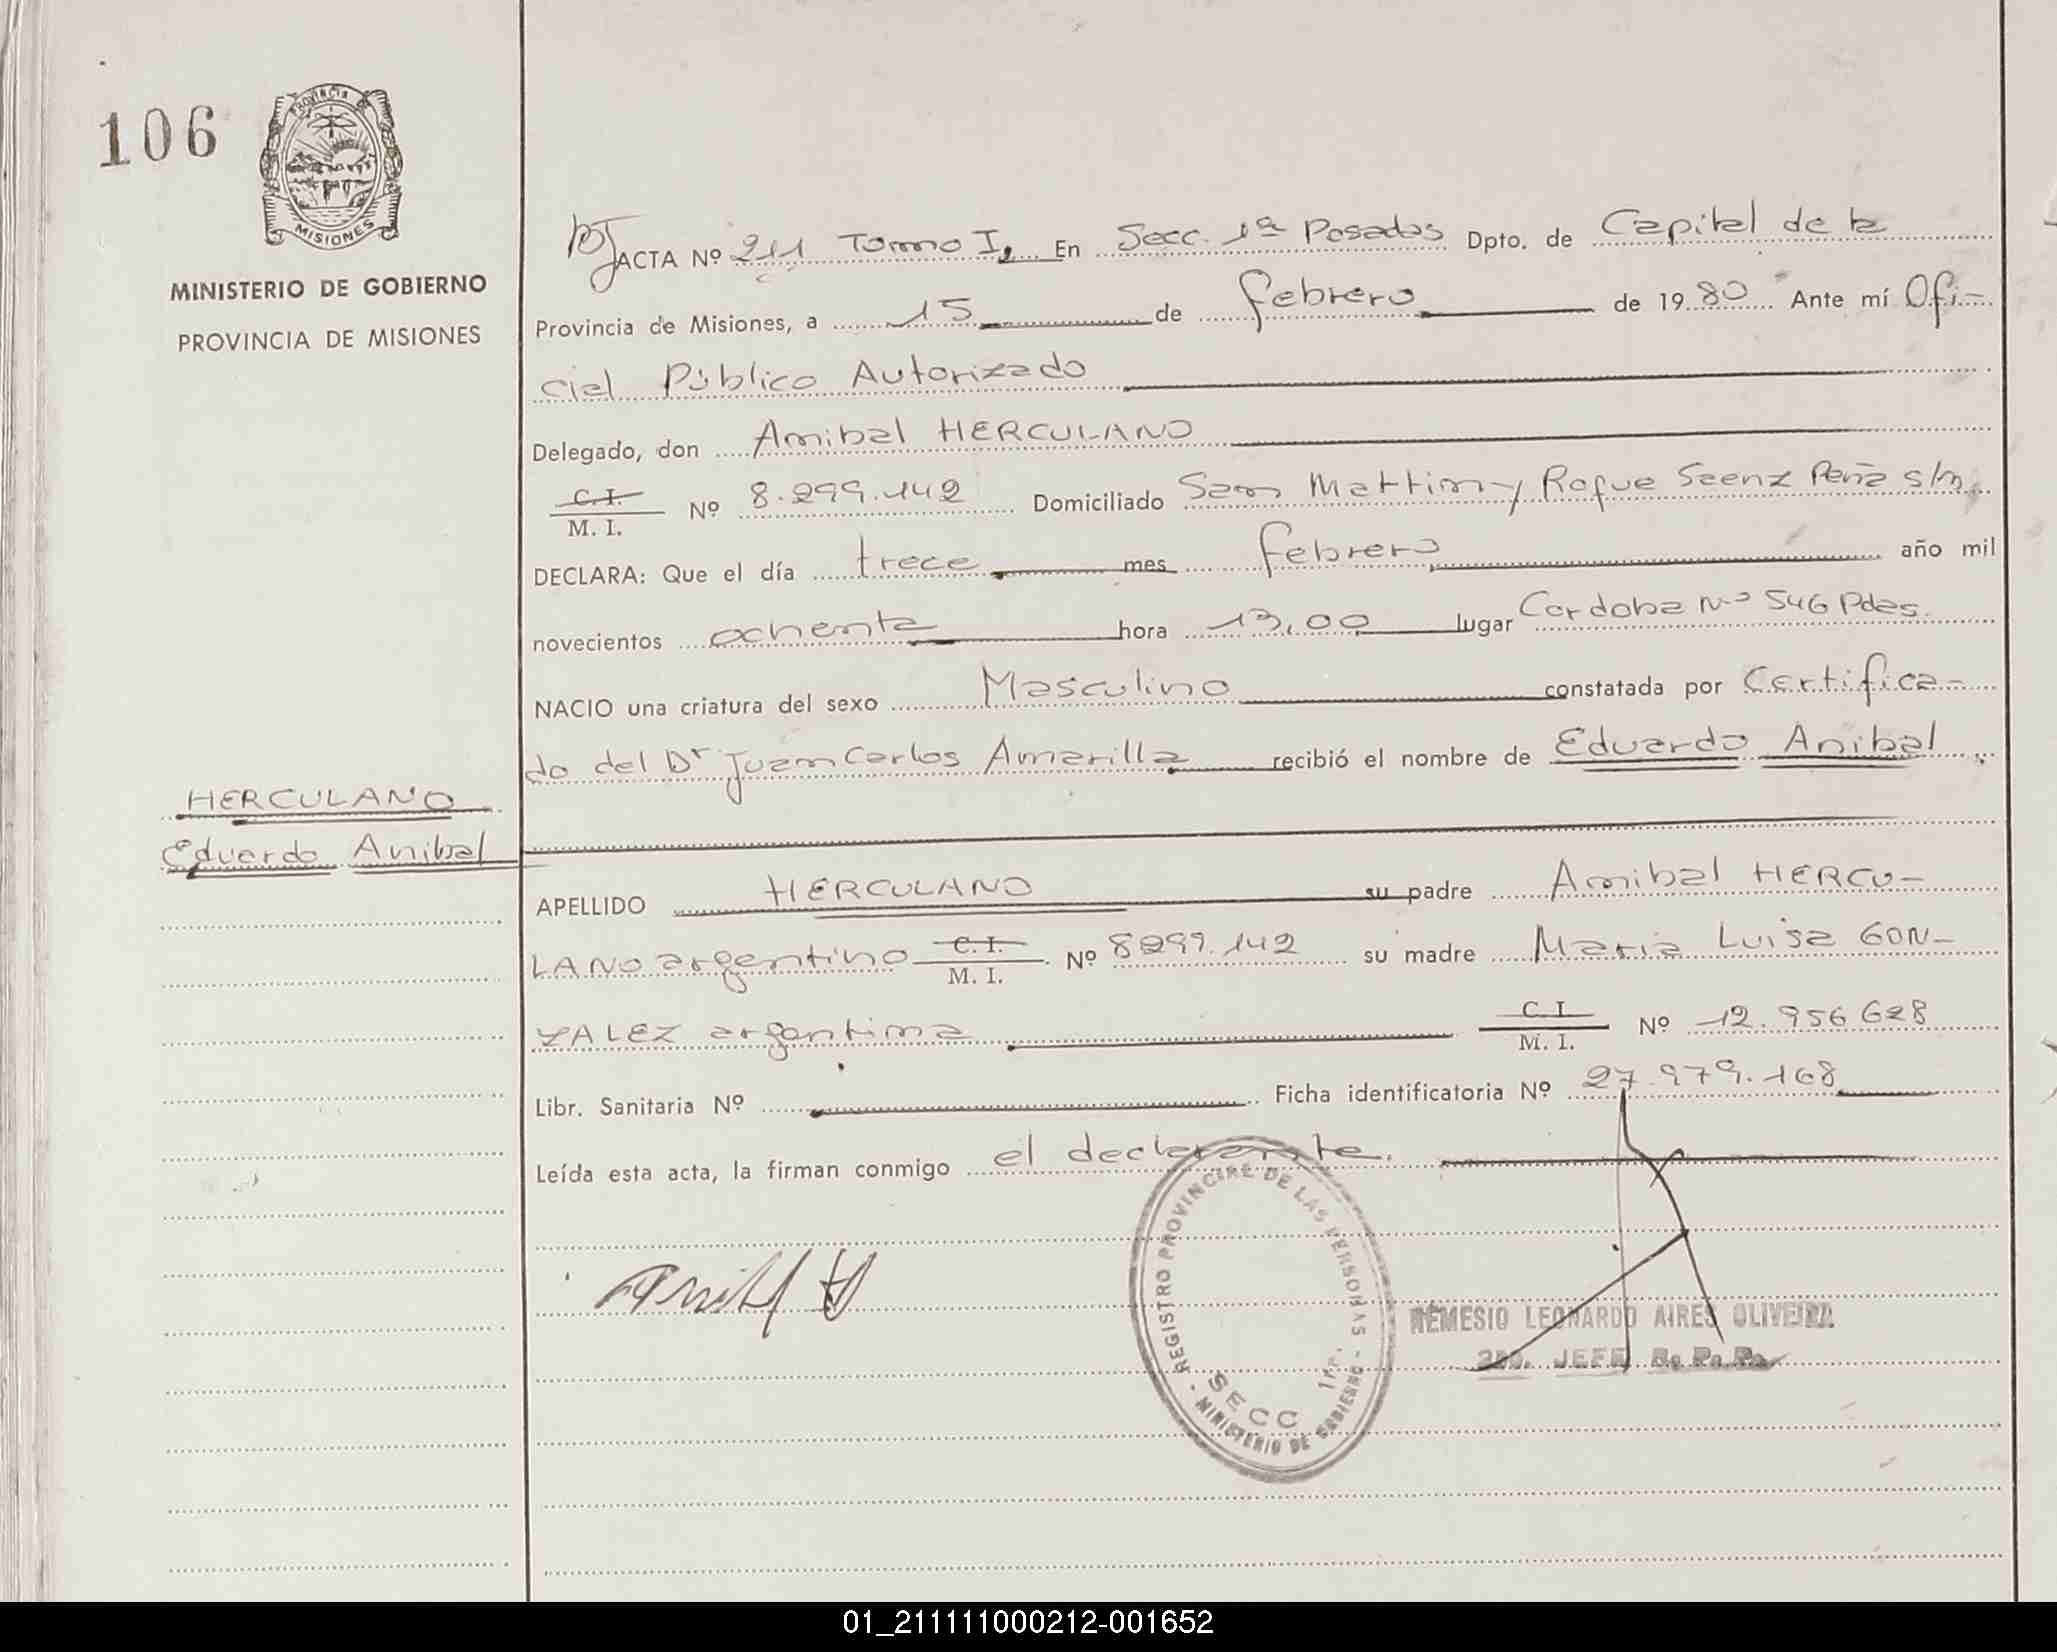 106
PROVINCIA
MISIONES
MINISTERIO DE GOBIERNO
PROVINCIA DE MISIONES
ACTA Nº 211 Tomo I, En Secc. 1ª Posadas Dpto. de Capital de la
Provincia de Misiones, a 15 de febrero de 1980 Ante mí Ofi-
cial Público Autorizado
Delegado, don Anibal HERCULANO
C. I.
M. I. Nº 8.299.142 Domiciliado San Martin y Roque Saenz Peña s/n,
DECLARA: Que el día trece mes febrero año mil
novecientos ochenta hora 13,00 lugar Cordoba Nº 546 Pdas.
NACIO una criatura del sexo Masculino constatada por Certifica-
do del Dr Juan Carlos Amarilla recibió el nombre de Eduardo Anibal
HERCULANO
Eduardo Anibal
APELLIDO HERCULANO su padre Anibal HERCU-
LANO argentino C. I.
M. I. Nº 8299.142 su madre Maria Luisa GON-
ZALEZ argentina C. I.
M. I. Nº 12.956 628
Libr. Sanitaria Nº Ficha identificatoria Nº 27.979.168
Leída esta acta, la firman conmigo el declarante.
REGISTRO PROVINCIAL DE LAS PERSONAS - MINISTERIO DE GOBIERNO -
SECC 1ra.
NEMESIO LEONARDO AIRES OLIVEIRA
2do. JEFE R. P. P.
01_211111000212-001652